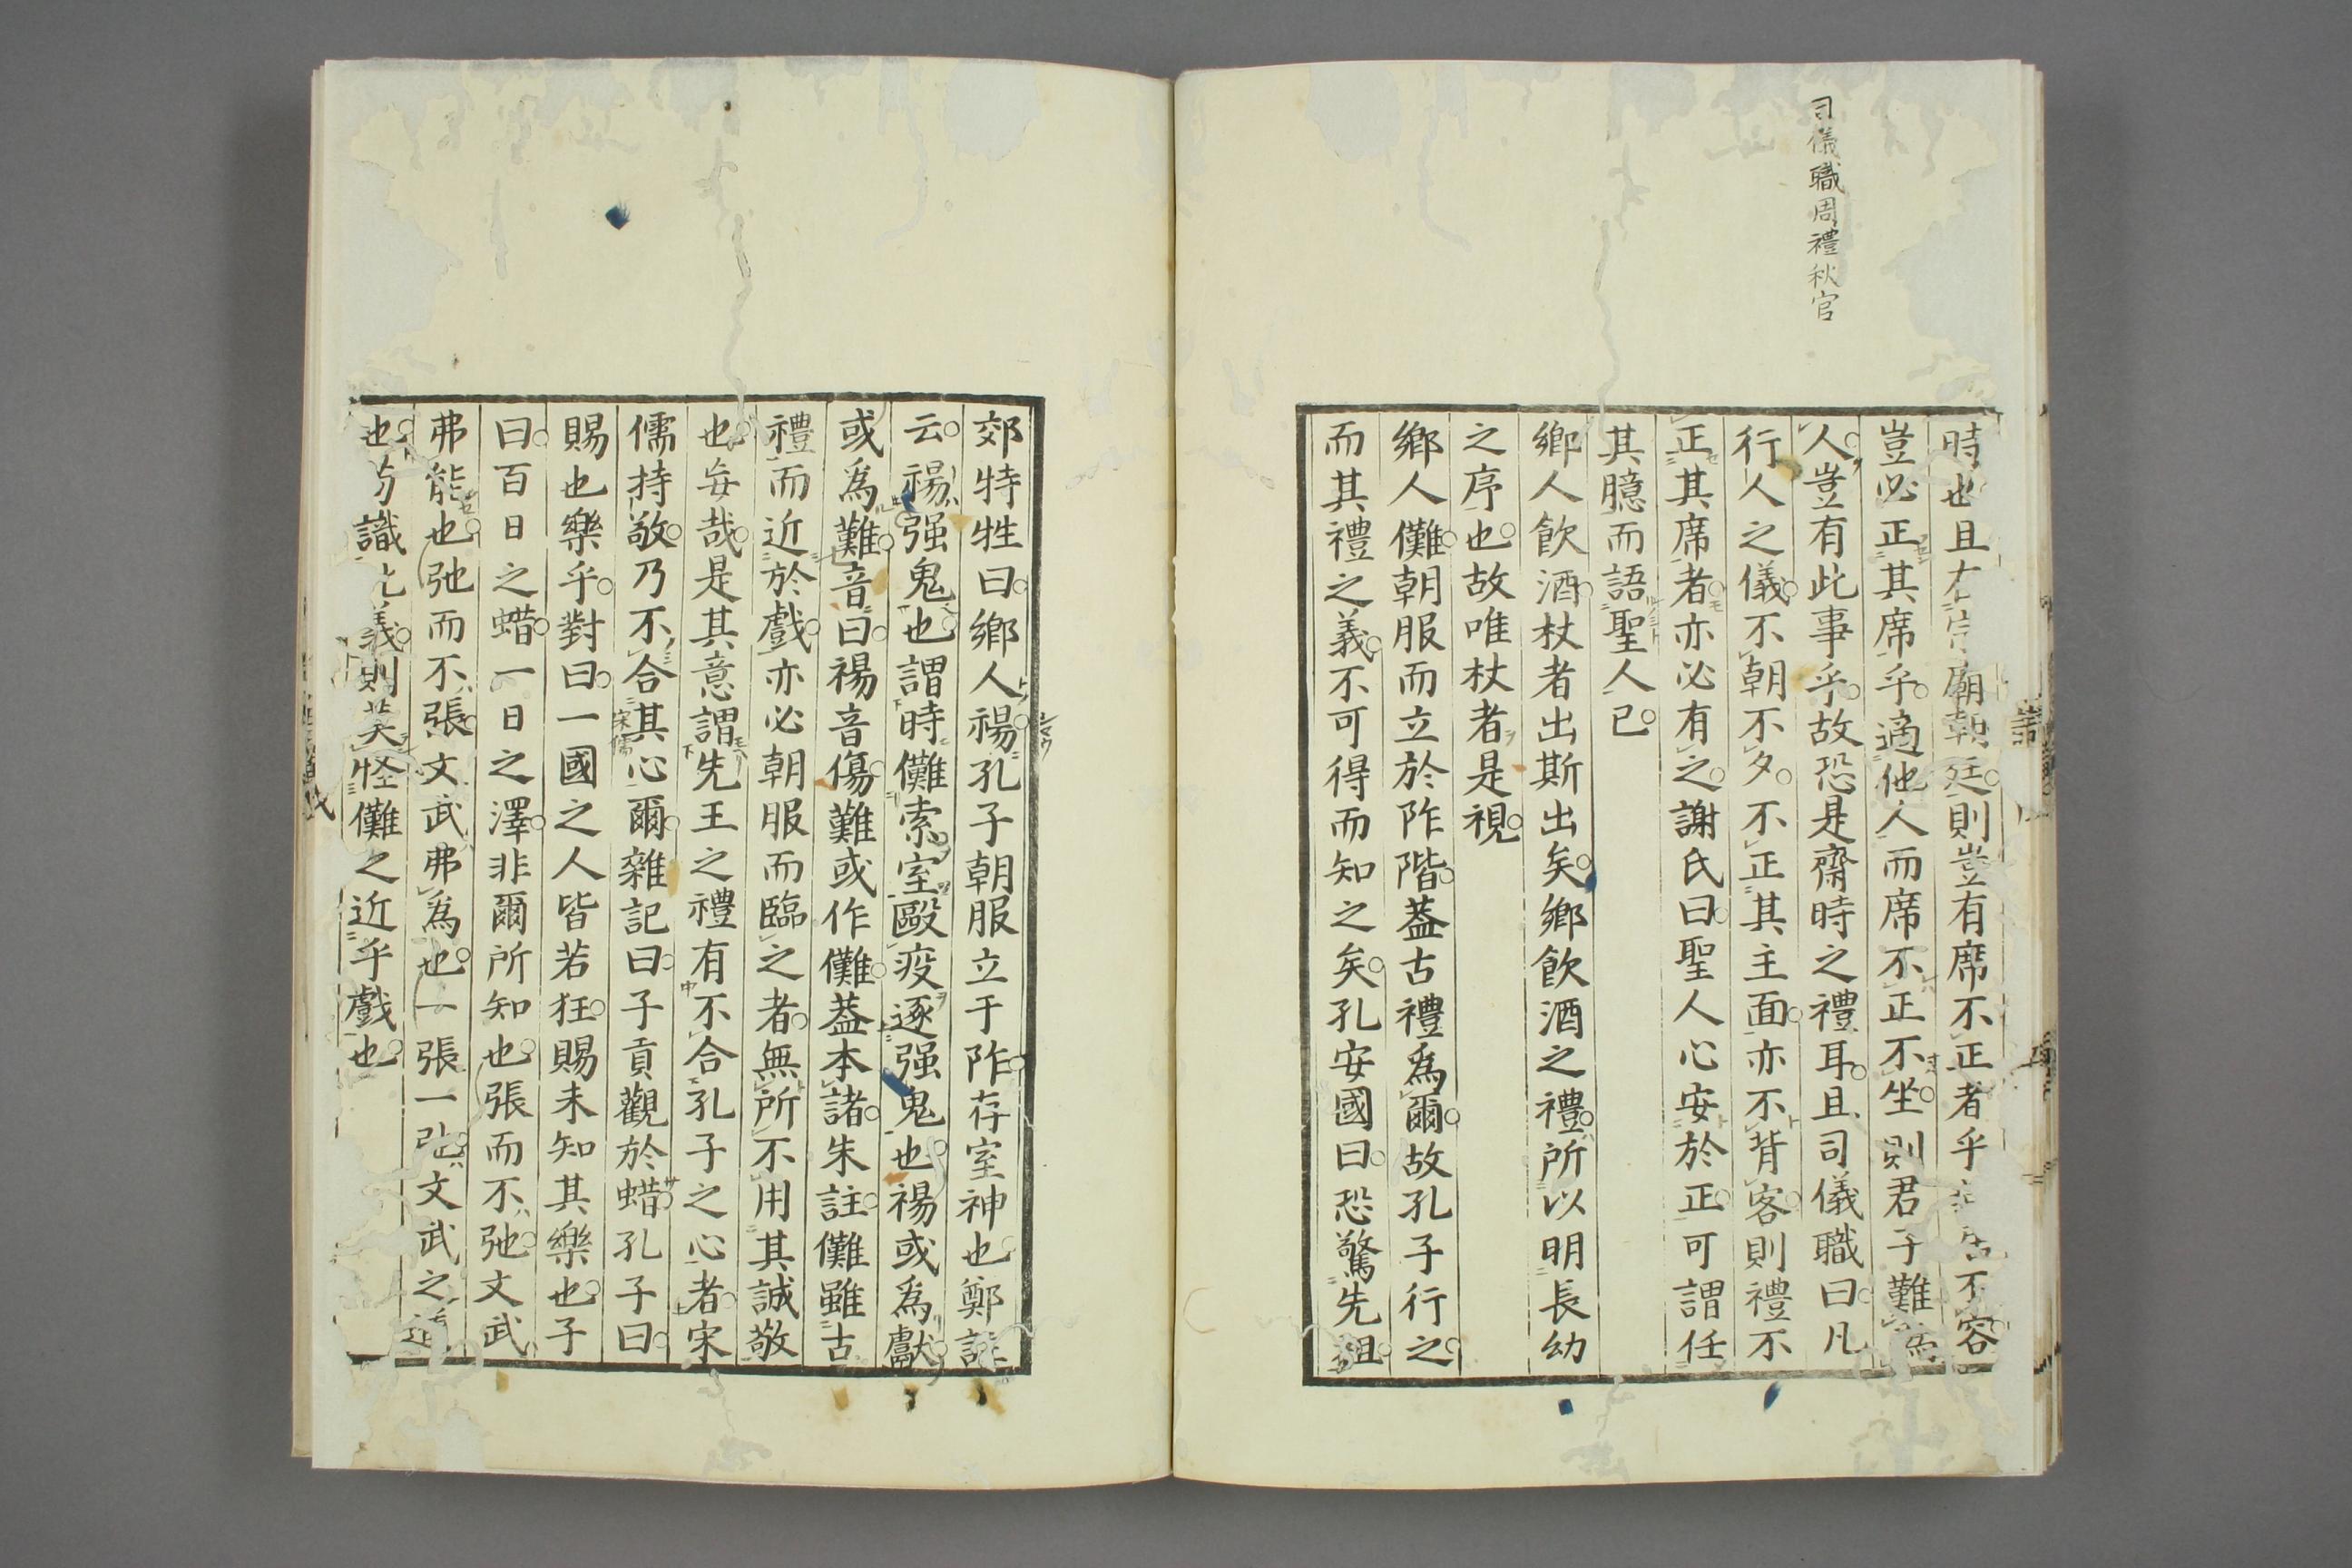 司儀職周禮秋官
時也且在宗廟朝廷則豈有席不正者乎居不容
豈必正其席乎適他人而席不正不坐則君子難為
人豈有此事乎故恐是齋時之禮耳且司儀職曰凡
行人之儀不朝不夕不正其主面亦不背客則禮不
正其席者亦必有之謝氏曰聖人心安於正可謂任
其臆而語聖人已
鄉人飲酒杖者出斯出矣鄉飲酒之禮所以明長幼
之序也故唯杖者是視
鄉人儺朝服而立於阼階蓋古禮為爾故孔子行之
而其禮之義不可得而知之矣孔安國曰恐驚先祖
郊特牲曰鄉人禓孔子朝服立于阼存室神也鄭註
云禓强鬼也謂時儺索室毆疫逐强鬼也禓或為獻
或為難音曰禓音傷難或作儺蓋本諸朱註儺雖古
禮而近於戲亦必朝服而臨之者無所不用其誠敬
也妄哉是其意謂先王之禮有不合孔子之心者宋
儒持敬乃不合其心爾雜記曰子貢觀於蜡孔子曰
宋儒
賜也樂乎對曰一國之人皆若狂賜未知其樂也子
曰百日之蜡一日之澤非爾所知也張而不弛文武
弗能也弛而不張文武弗為也一張一弛文武之道
也苟識此義則奚怪儺之近乎戲也